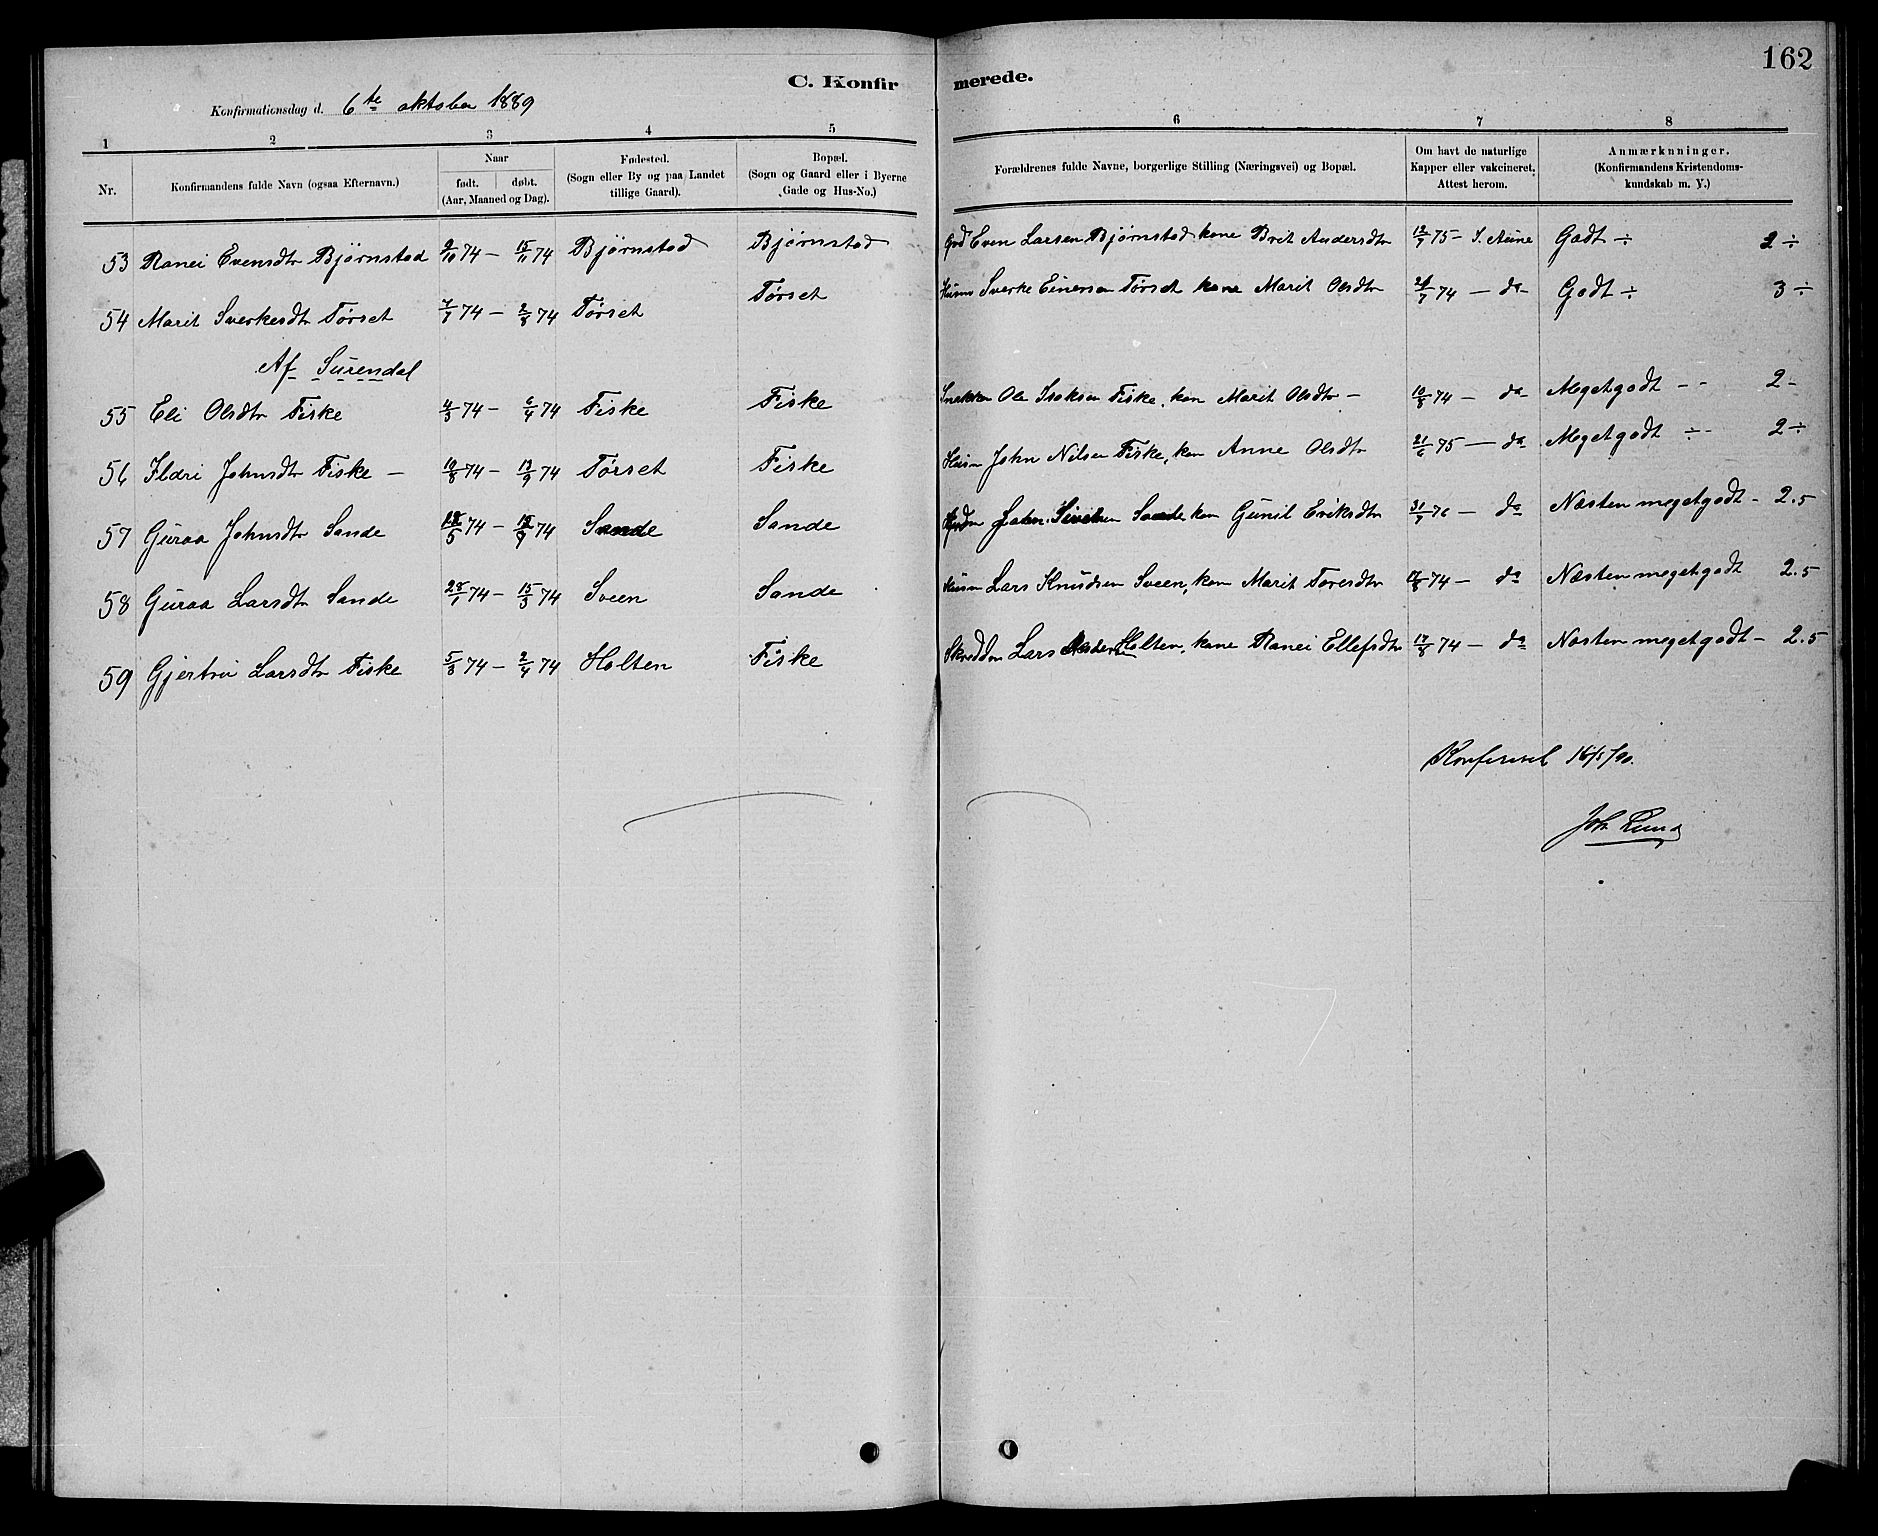 162
C. Konfirmerede.
Konfirmationsdag d. 6te oktober 1889
1 2 3 4 5 6 7 8
Nr.
Konfirmandens fulde Navn (ogsaa Efternavn.)
Naar
født. døbt.
(Aar, Maaned og Dag).
Fødested.
(Sogn eller By og paa Landet
tillige Gaard).
Bopæl.
(Sogn og Gaard eller i Byerne
Gade og Hus-No.)
Forældrenes fulde Navne, borgerlige Stilling (Næringsvei) og Bopæl.
Om havt de naturlige
Kapper eller vakcineret,
Attest herom.
Anmærknninger.
(Konfirmandens Kristendoms-
kundskab m. V.)
53 Ranei Evensdtr Bjørnstad 9/10 74 – 15/11 74 Bjørnstad Bjørnstad Grd Even Larsen Bjørnstad kone Brit Andersdtr 75 – S. Aune Godt ÷ 2 ÷
54 Marit Sverkesdtr Tørset 7/7 74 – 2/8 74 Tørset Tørset Husm Sverke Einersen Tørset kone Marit Olsdtr 74 – do Godt ÷ 3 ÷
Af Surendal
55 Eli Olsdtr Fiske 4/3 74 – 6/4 74 Fiske Fiske Snekker Ole Isaksen Fiske, kon Marit Olsdtr – 10/8 74 – do Megetgodt - - 2 -
56 Ildri Johnsdtr Fiske – 19/8 74 – 13/9 74 Tørset Fiske Husm John Nilsen Fiske, kon Anne Olsdtr 21/6 75 – do Megetgodt ÷ - 2 ÷
57 Guraa Johnsdtr Sande 74 – 74 Sande Sande John Sivertsen Sande kon Gunil Eriksdtr 31/7 76 – do Næsten megetgodt - 2.5
58 Guraa Larsdtr Sande 28/1 74 – 15/3 74 Sveen Sande Husm Lars Knudsen Sveen, kon Marit Toresdtr 74 – do Næsten megetgodt 2.5
59 Gjertru Larsdtr Fiske 5/3 74 – 2/4 74 Holten Fiske Skredder Lars Holten, kone Ranei Ellefsdtr 74 – do Næsten megetgodt – 2.5
Konfereret 16/5/90.
Joh Lund